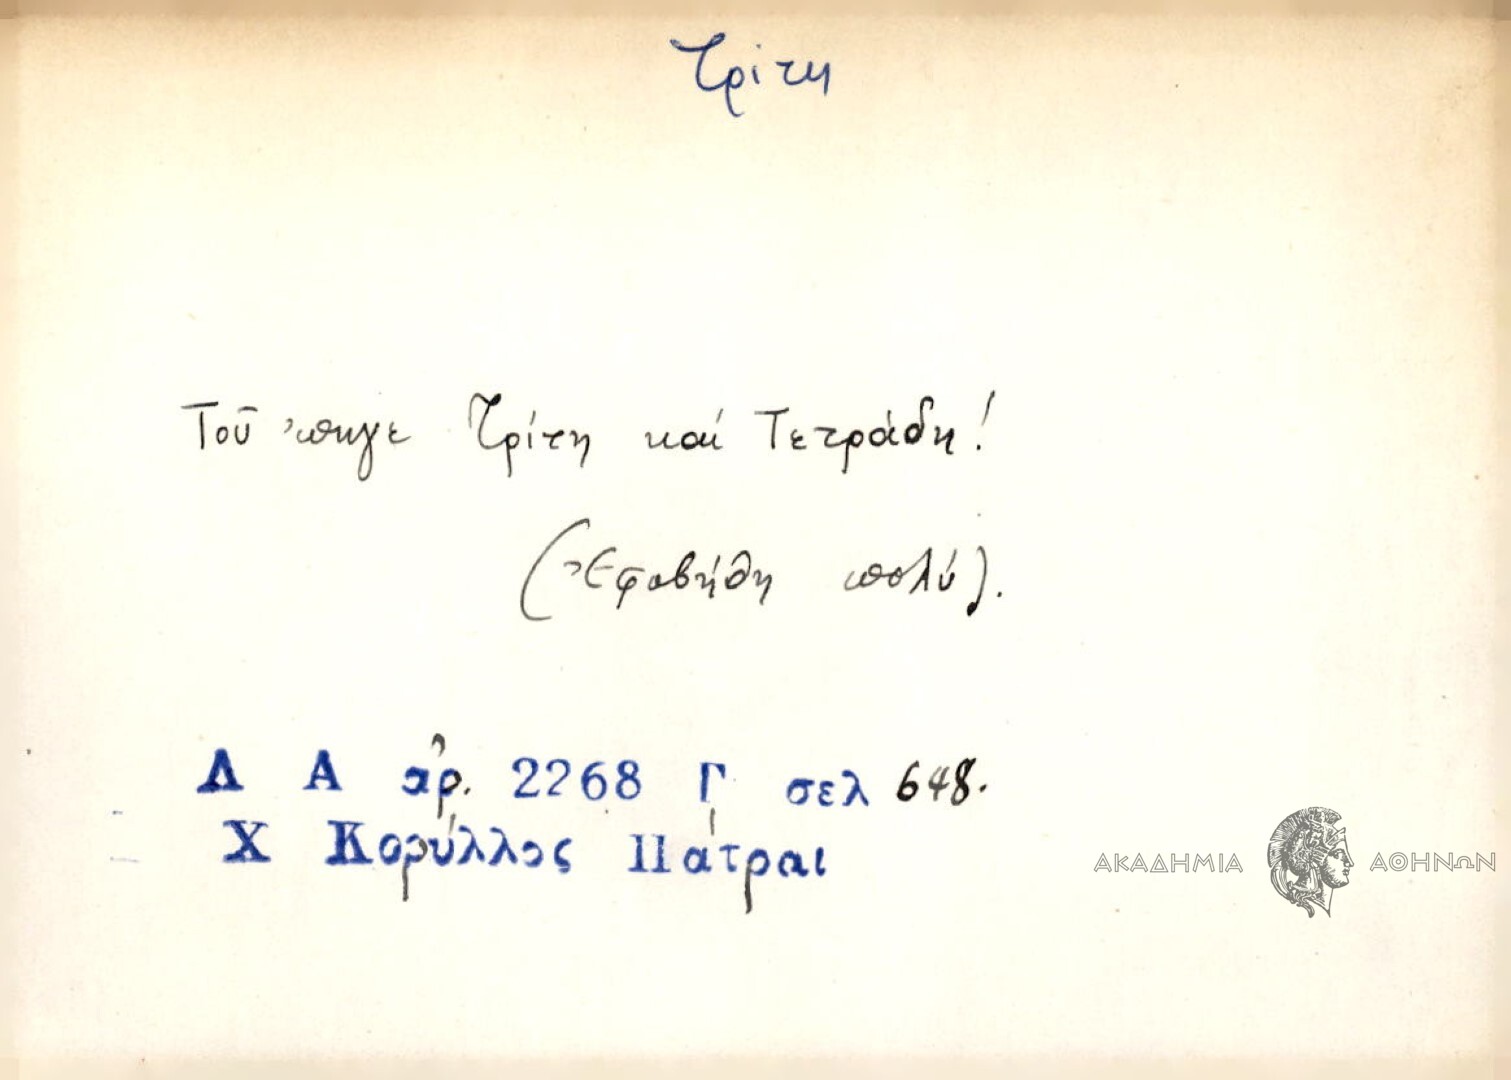 Τρίτη
Τοῦ 'πηγε Τρίτη καί Τετράδη!
(Ἐφοβήθη πολύ).
Λ Α ἀρ. 2268 Γ σελ 648.
Χ Κορύλλος Πάτραι
ΑΚΑΔΗΜΙΑ ΑΘΗΝΩΝ